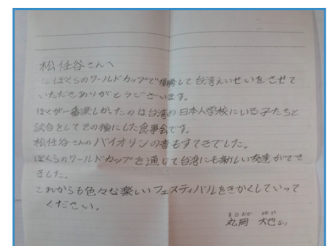 松任谷さんへ
ぼくらのワールドカップで優勝して台湾えんせいをさせて
いただきありがとうございます。
ぼくが一番楽しかたのは台湾の日本人学校にいる子たちと
試合をしてその後にした食事会です。
松任谷さんのバイオリンの音もすてきでした。
ぼくらのワールドカップを通して台湾にも新しい友達ができ
ました。
これからも色々な楽しいフェスティバルをきかくしていって
ください。
丸岡 大